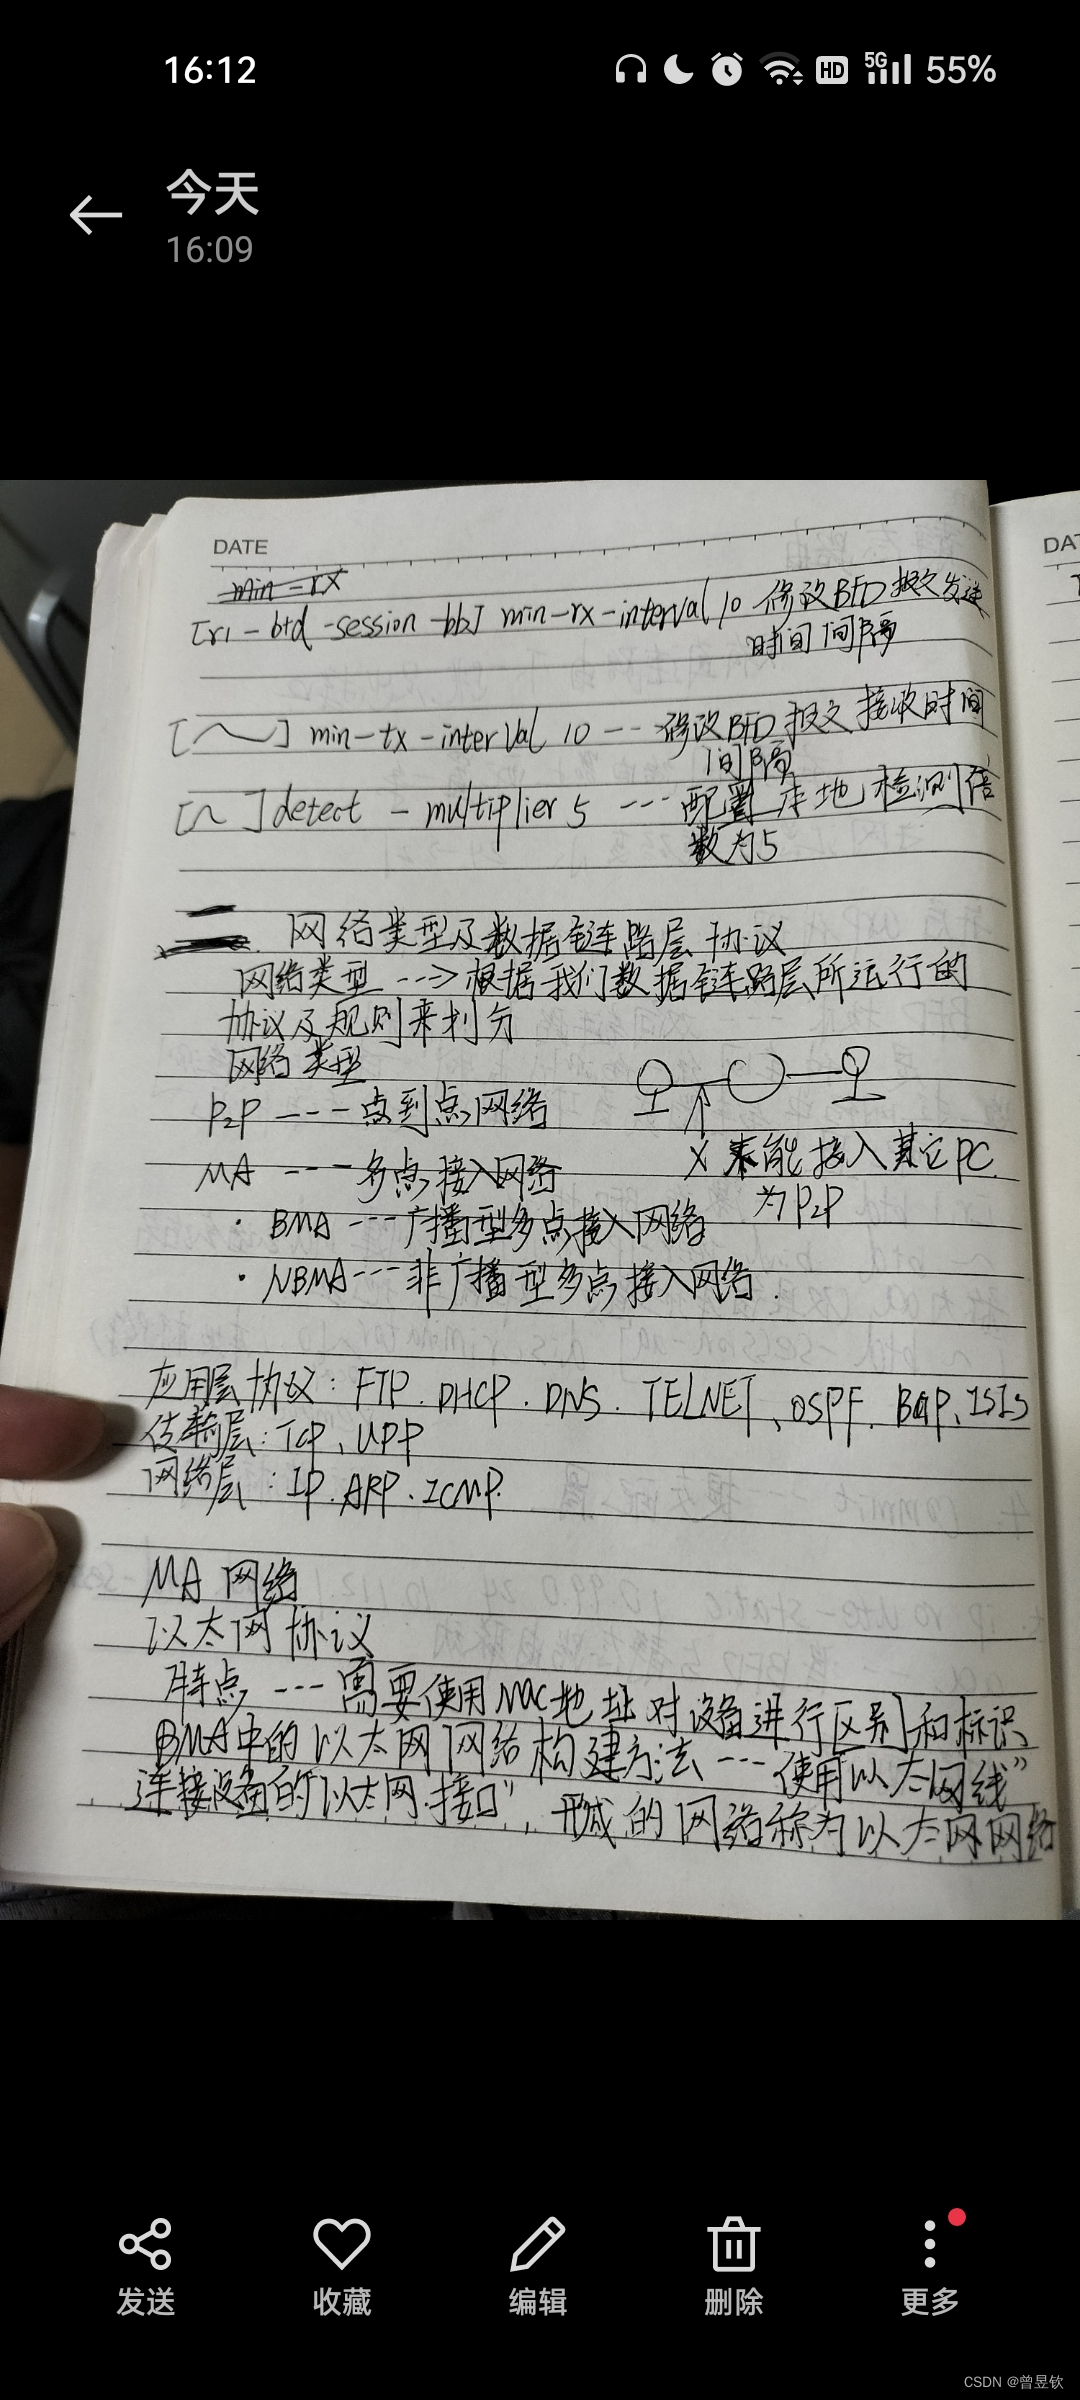 16:12
5G HD 55%
今天
16:09
DATE
DAT
min-rx
[r1-bfd-session-bb] min-rx-interval 10 修改BFD报文发送
时间间隔
[~] min-tx-interval 10 --- 修改BFD报文接收时间
间隔
[~] detect-multiplier 5 --- 配置本地检测倍
数为5
二. 网络类型及数据链路层协议
网络类型 ---> 根据我们数据链路层所运行的
协议及规则来划分
网络类型
P2P --- 点到点网络
MA --- 多点接入网络
X 未能接入其它PC
为P2P
· BMA --- 广播型多点接入网络
· NBMA --- 非广播型多点接入网络.
应用层协议: FTP.DHCP.DNS.TELNET、OSPF.BGP、ISIS
传输层: TCP、UPP
网络层: IP.ARP.ICMP.
MA网络
以太网协议
特点 --- 需要使用MAC地址对设备进行区别和标识
BMA中的以太网网络构建方法 --- 使用以太网线”
连接设备的“以太网接口”, 形成的网络称为以太网网络
发送
收藏
编辑
删除
更多
CSDN @曾昱钦